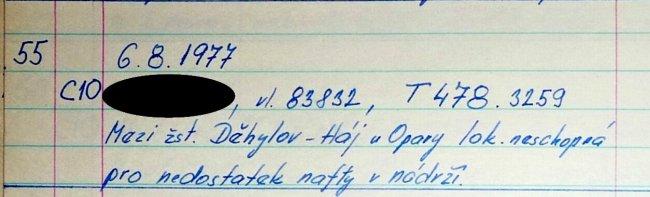 55 6.8.1977
C10 , vl. 83832, T 478.3259
Mezi žst. Děhylov - Háj u Opavy lok. neschopná
pro nedostatek nafty v nádrži.